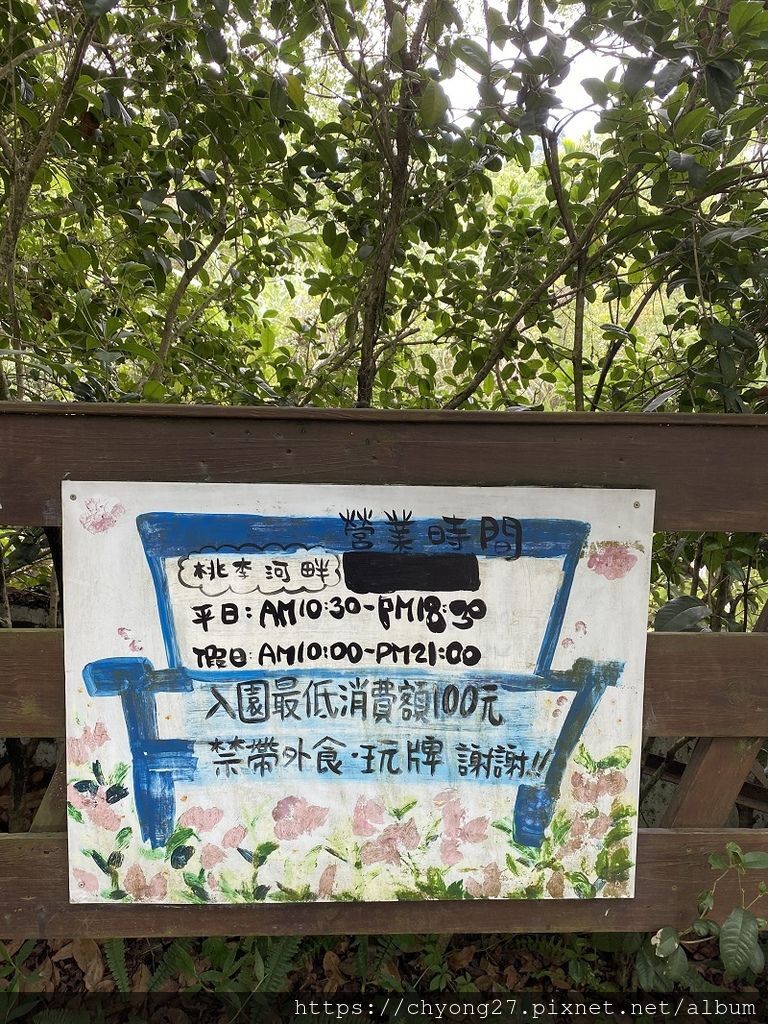 營業時間
桃李河畔
平日:AM10:30-PM18:30
假日:AM10:00-PM21:00
入園最低消費額100元
禁帶外食·玩牌 謝謝!!
https://chyong27.pixnet.net/album